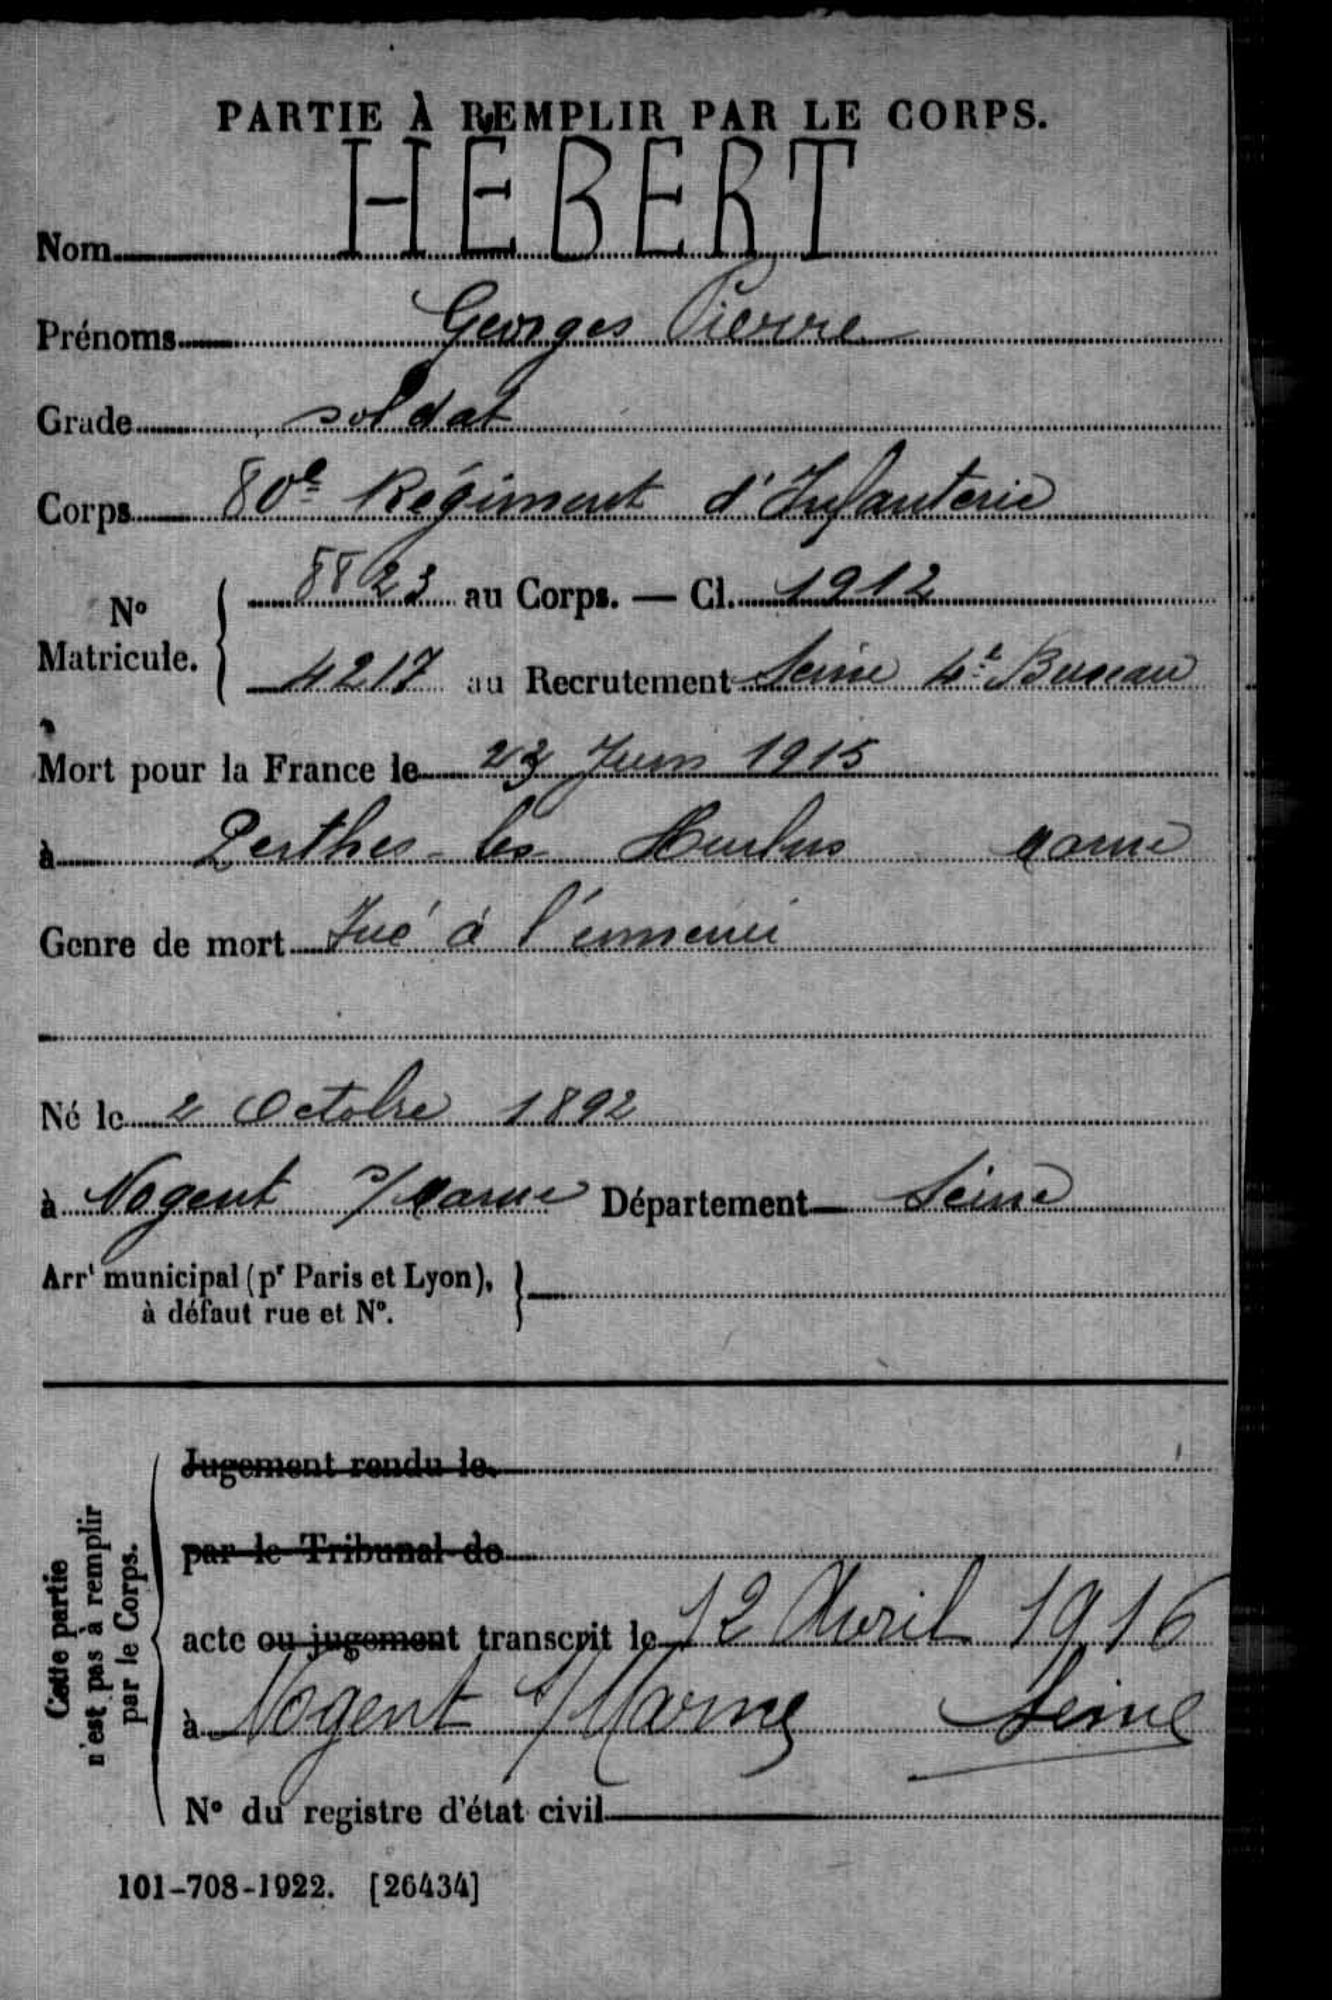 PARTIE À REMPLIR PAR LE CORPS.
Nom HEBERT
Prénoms Georges Pierre
Grade soldat
Corps 80e Régiment d'Infanterie
No Matricule. { 8823 au Corps. — Cl. 1912
4217 au Recrutement Seine 4e Bureau
Mort pour la France le 23 Juin 1915
à Perthes-les Hurlus Marne
Genre de mort Tué à l'ennemi
Né le 2 Octobre 1892
à Nogent s/Marne Département Seine
Arrt municipal (pr Paris et Lyon), }
à défaut rue et No.
Cette partie
n'est pas à remplir
par le Corps.
Jugement rendu le
par le Tribunal de
acte ou jugement transcrit le 12 Avril 1916
à Nogent s/Marne Seine
No du registre d'état civil
101-708-1922. [26434]